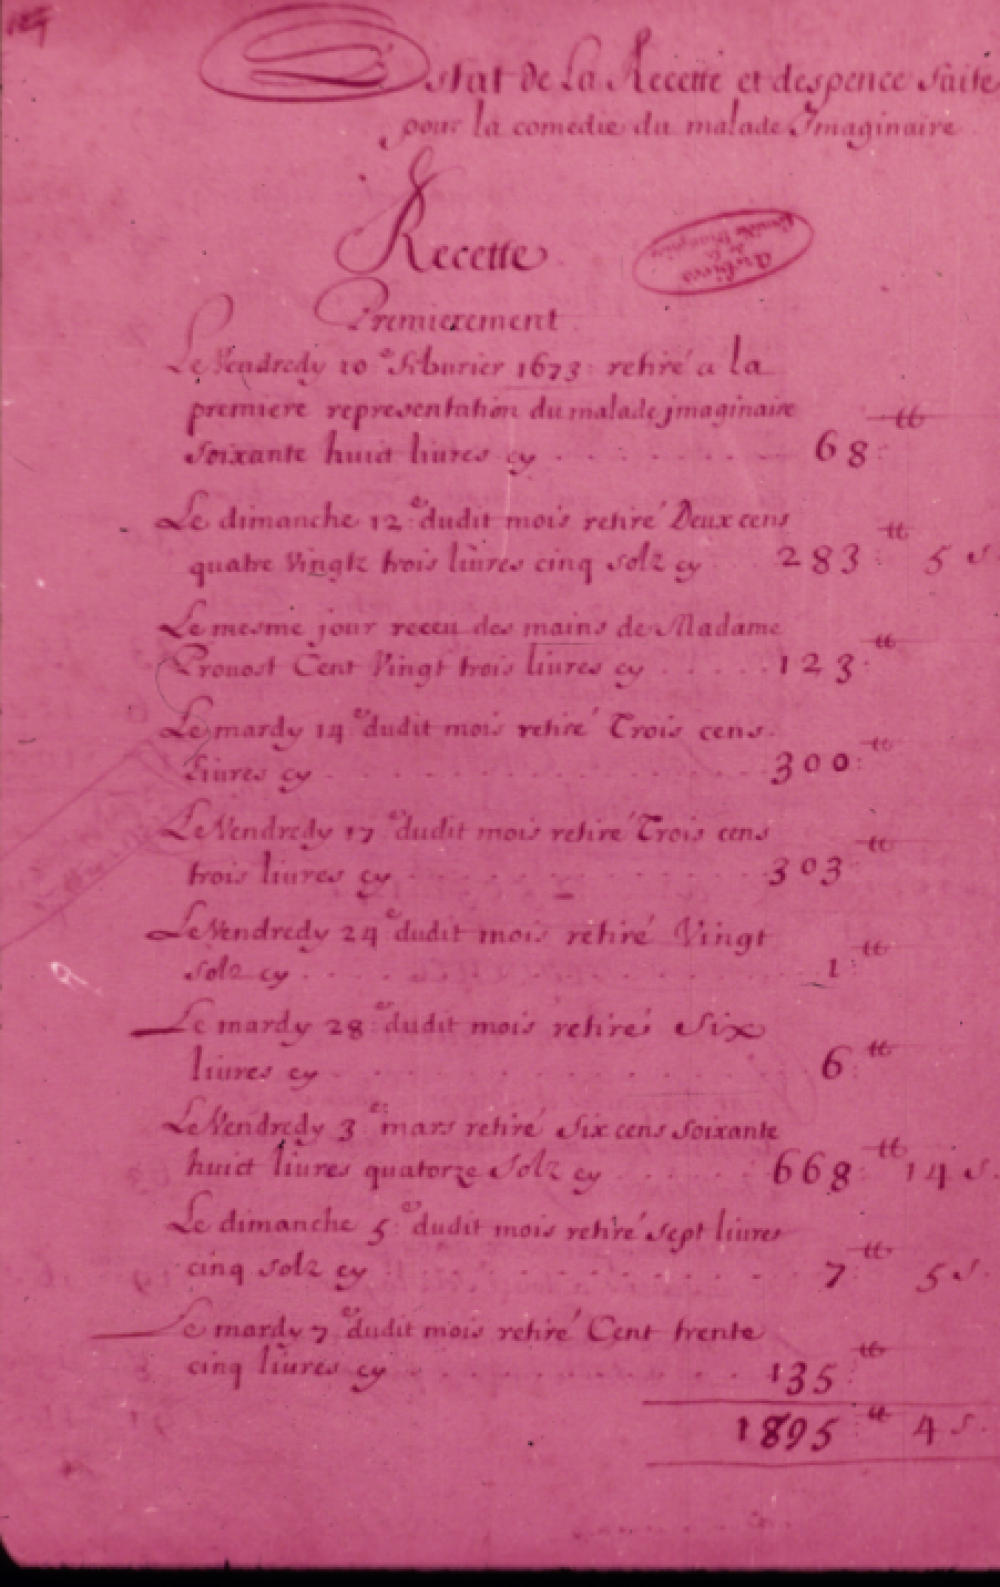 Estat de La Recette et despence faite
pour la comedie du malade Imaginaire
Recette
Archives
de la
Comédie Française
Premierement
Le Vendredy 10e. febvrier 1673: retiré a la
premiere representation du malade jmaginaire
soixante huict liures cy . . . . . . . . 68 tt
Le dimanche 12e. dudit mois retiré Deux cens
quatre Vingtz trois liures cinq solz cy . . 283 tt 5 s
Le mesme jour receu des mains de Madame
Prouost Cent Vingt trois liures cy . . . . . 123 tt
Le mardy 14e. dudit mois retiré Trois cens
Liures cy . . . . . . . . . . . . . 300 tt
Le Vendredy 17e. dudit mois retiré Trois cens
trois liures cy . . . . . . . . . . . 303 tt
Le Vendredy 24e. dudit mois retiré Vingt
solz cy . . . . . . . . . . . . . 1 tt
Le mardy 28e. dudit mois retiré Six
liures cy . . . . . . . . . . . . 6 tt
Le Vendredy 3e. mars retiré Six cens Soixante
huict liures quatorze Solz cy . . . . . . 668 tt 14 s.
Le dimanche 5e. dudit mois retiré sept liures
cinq solz cy . . . . . . . . . . . . 7 tt 5 s.
Le mardy 7e. dudit mois retiré Cent trente
cinq liures cy . . . . . . . . . . . 135 tt
1895 tt 4 s.